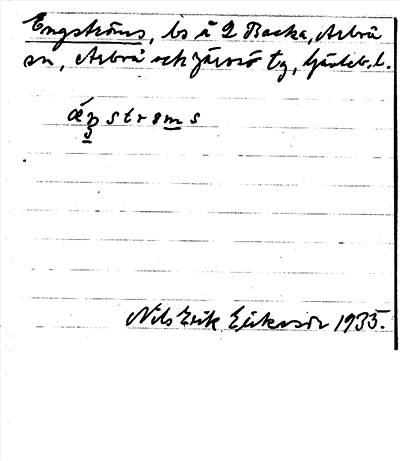 Engströms, bs å 2 Backa, Arbrå
sn, Arbrå och Järvsö tg, Gävleb. l.
ǽŋströms
Nils Erik Eriksson 1935.